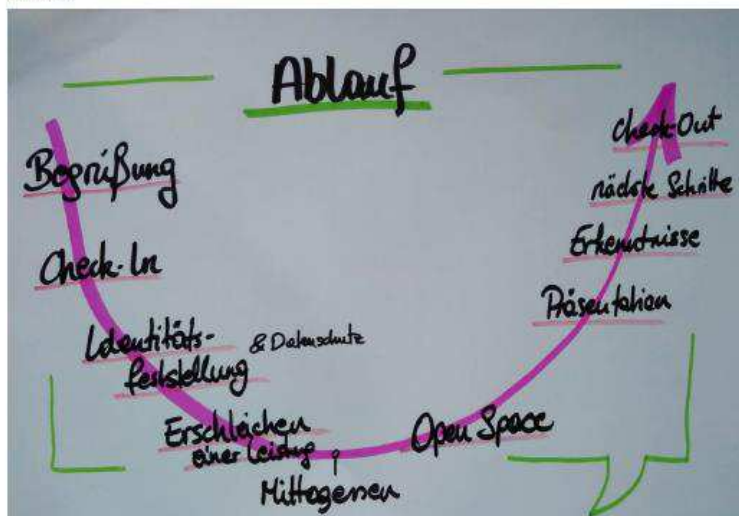 Ablauf
Begrüßung
Check-In
Identitäts-
feststellung
& Datenschutz
Erschleichen
einer Leistung
Mittagessen
Open Space
Präsentation
Erkenntnisse
nächste Schritte
Check-Out